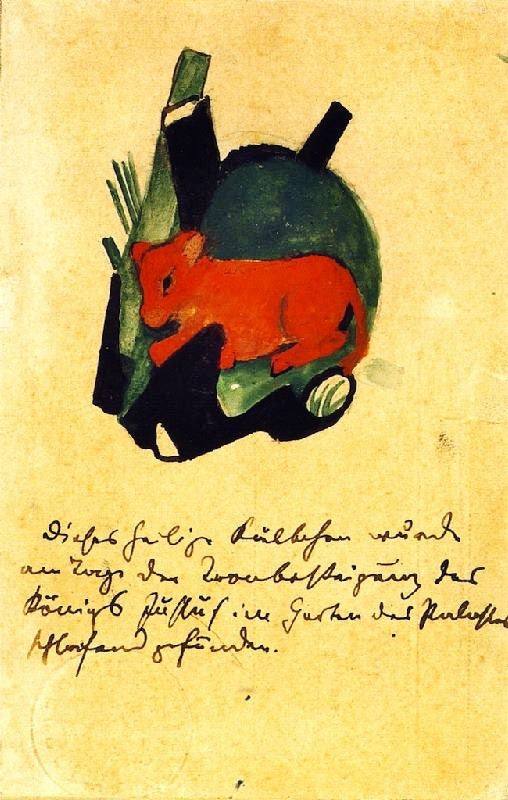 Dieses heilige Kälbchen wurde
am Tage der Tronbesteigung des
Königs Jussuf im Garten des Palastes
schlafend gefunden.